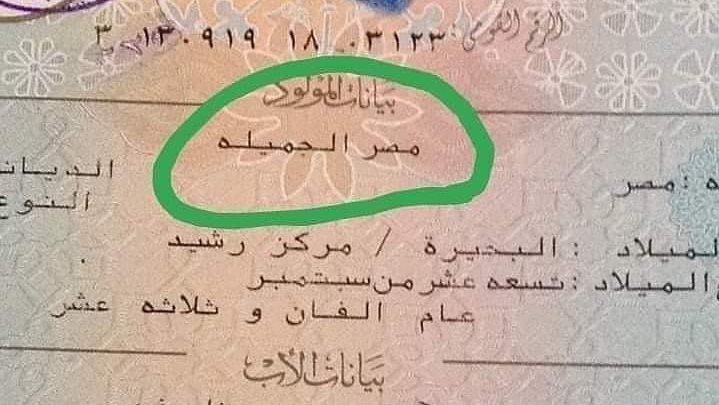 الرقم القومى: ٣ ١٣٠٩١٩ ١٨ ٠٣١٢٣
بيانات المولود
مصر الجميله
ه : مصر الديان
النوع
لميلاد : البحيرة / مركز رشيد
الميلاد : تسعه عشر من سبتمبر
عام الفان و ثلاثه عشر
بيانات الأب